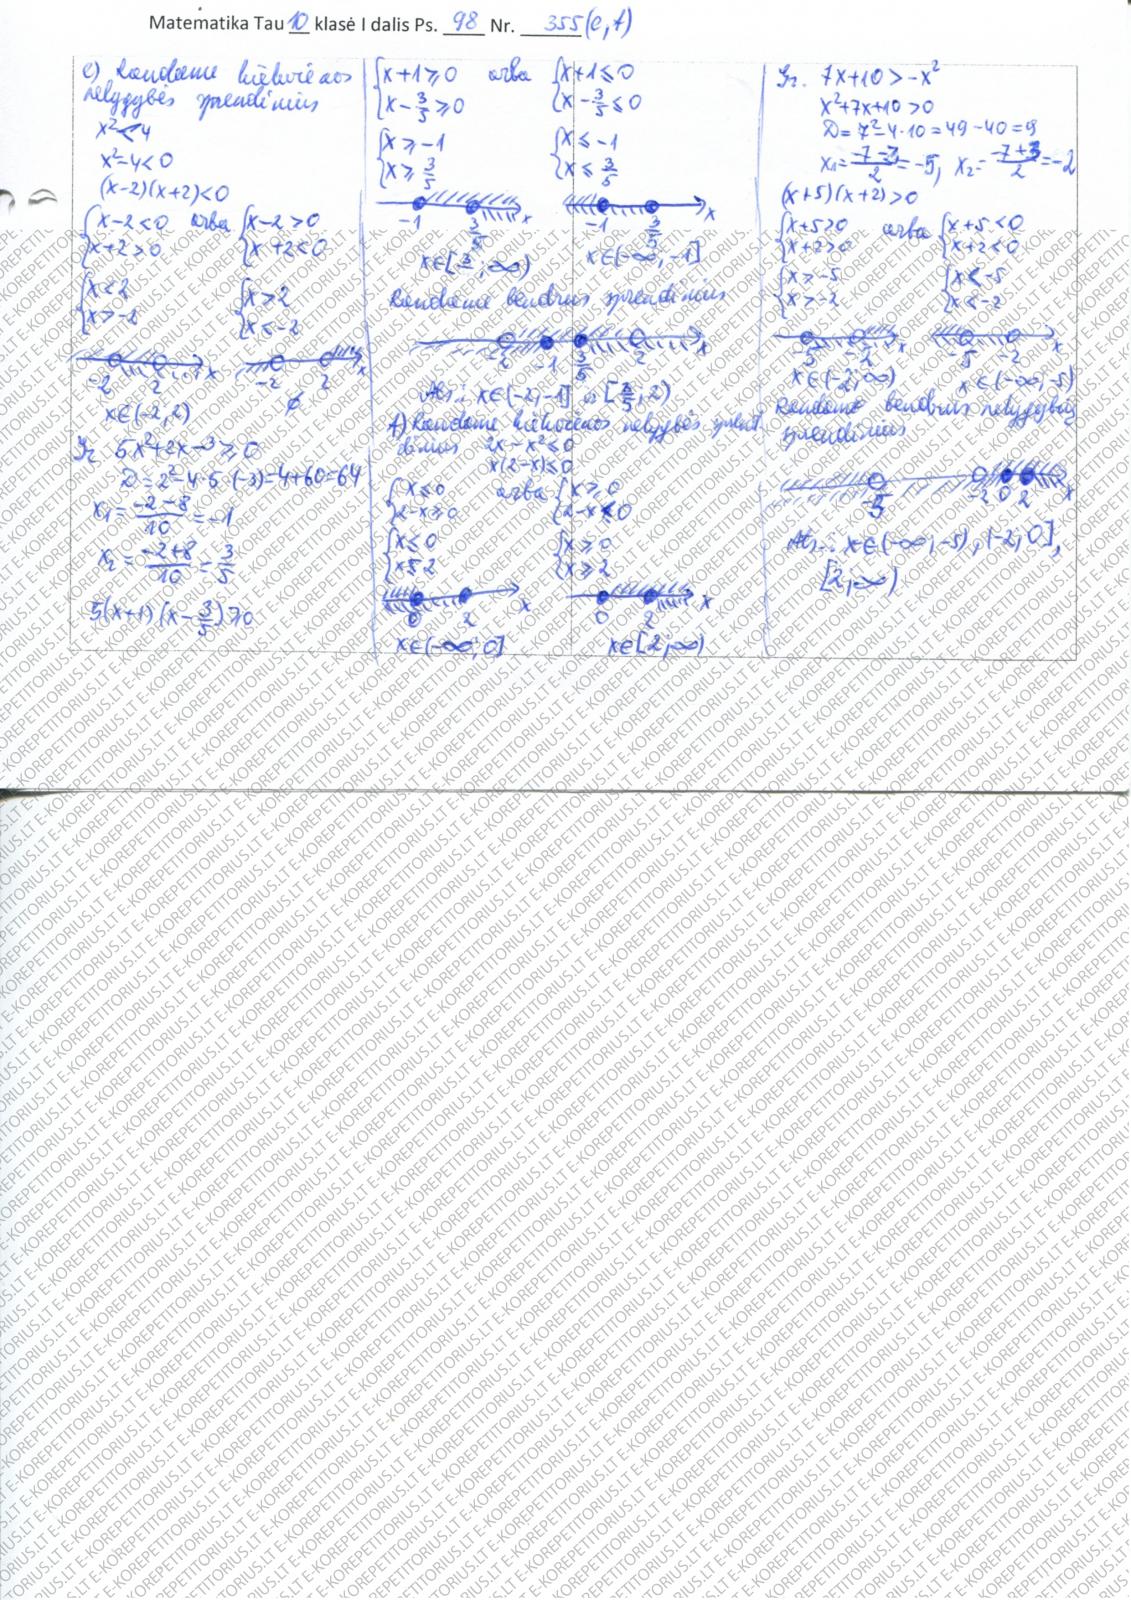 Matematika Tau 10 klasė I dalis Ps. 98 Nr. 355(e,f)
e) Randame kiekvienos
nelygybės sprendinius
x²<4
x²-4<0
(x-2)(x+2)<0
{x-2<0 arba {x-2>0
{x+2>0 {x+2<0
{x<2 {x>2
{x>-2 {x<-2
-2 2 x -2 2 x
x∈(-2;2) ∅
Ir 5x²+2x-3≥0
D=2²-4·5·(-3)=4+60=64
x₁=(-2-8)/10=-1
x₂=(-2+8)/10=3/5
5(x+1)(x-3/5)≥0
{x+1≥0 arba {x+1≤0
{x-3/5≥0 {x-3/5≤0
{x≥-1 {x≤-1
{x≥3/5 {x≤3/5
-1 3/5 x -1 3/5 x
x∈[3/5;∞) x∈(-∞;-1]
Randame bendrus sprendinius
-2 -1 3/5 2 x
Ats.: x∈(-2;-1] ∪ [3/5;2)
f) Randame kiekvienos nelygybės spren-
dinius 2x-x²≤0
x(2-x)≤0
{x≤0 arba {x≥0
{2-x≥0 {2-x≤0
{x≤0 {x≥0
{x≤2 {x≥2
0 2 x 0 2 x
x∈(-∞;0] x∈[2;∞)
Ir. 7x+10>-x²
x²+7x+10>0
D=7²-4·10=49-40=9
x₁=(-7-3)/2=-5, x₂=(-7+3)/2=-2
(x+5)(x+2)>0
{x+5>0 arba {x+5<0
{x+2>0 {x+2<0
{x>-5 {x<-5
{x>-2 {x<-2
-5 -2 x -5 -2 x
x∈(-2;∞) x∈(-∞;-5)
Randame bendrus nelygybių
sprendinius
-5 -2 0 2 x
Ats.: x∈(-∞;-5), (-2;0],
[2;∞)
E-KOREPETITORIUS.LT